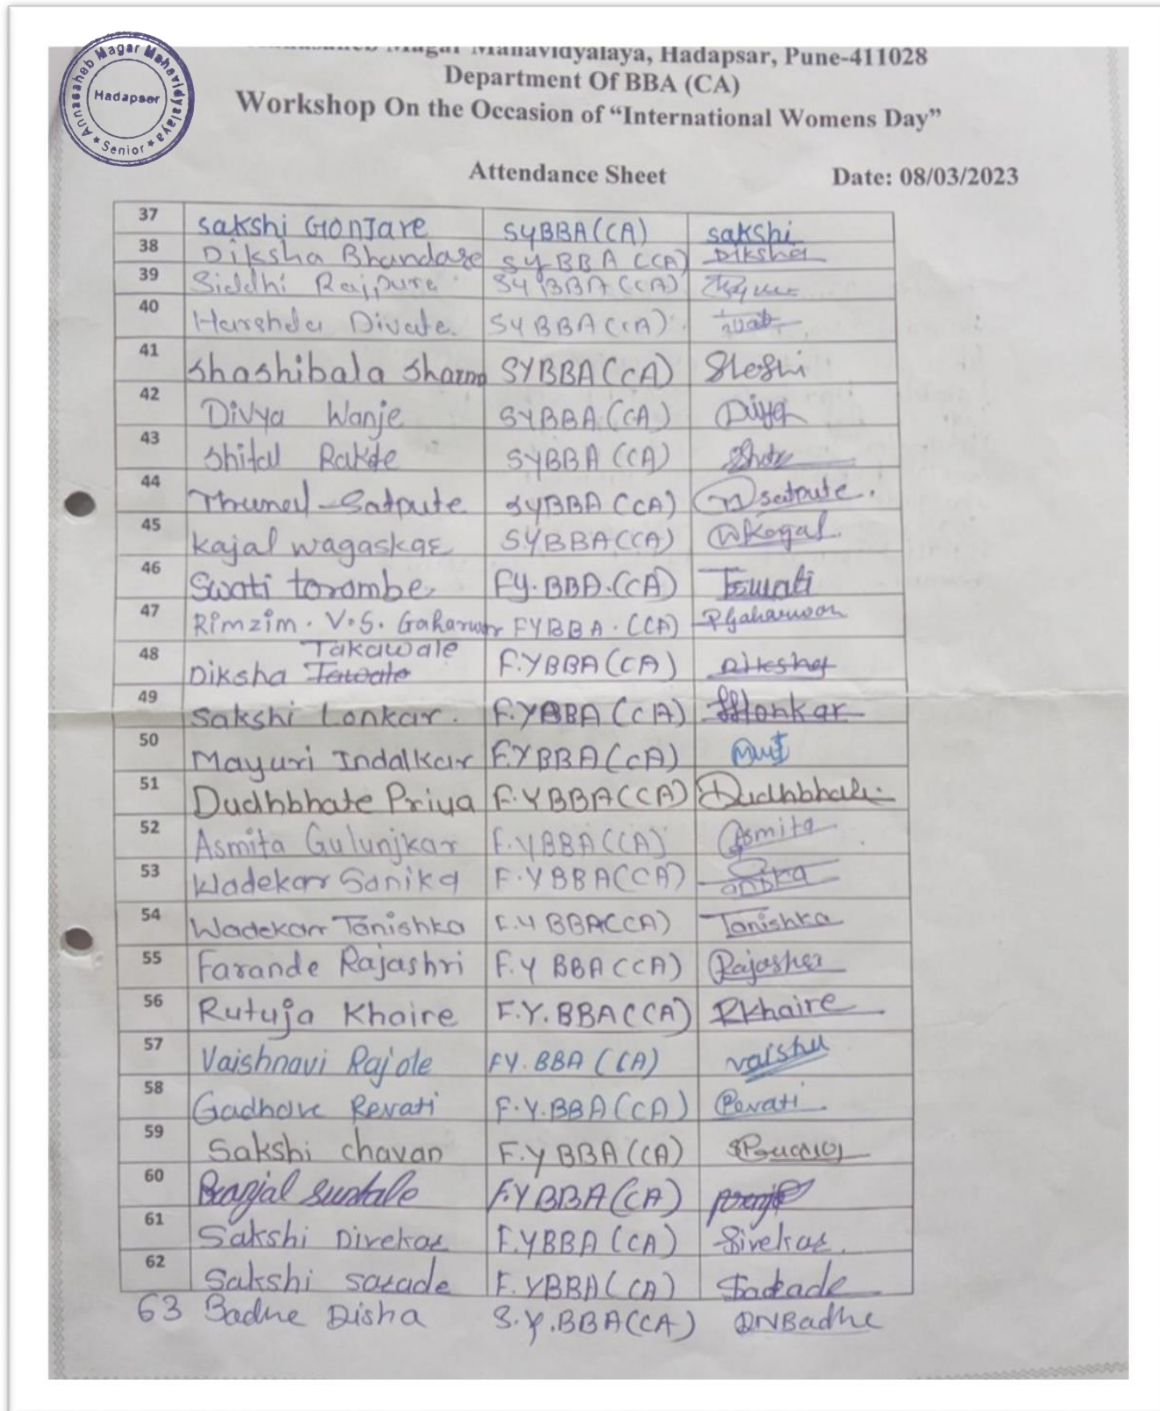 Annasaheb Magar Mahavidyalaya
Hadapsar
★ Senior ★
Magar Mahavidyalaya, Hadapsar, Pune-411028
Department Of BBA (CA)
Workshop On the Occasion of “International Womens Day”
Attendance Sheet Date: 08/03/2023
37 Sakshi Gonjare SYBBA(CA) sakshi
38 Diksha Bhandare SYBBA (CA) Diksha
39 Siddhi Rajpure SYBBA(CA)
40 Harshda Divate. SYBBA(CA)
41 Shashibala Sharma SYBBA(CA) Shashi
42 Divya Wanje SYBBA(CA) Divya
43 Shital Rakte SYBBA (CA)
44 Satpute SYBBA (CA) satpute.
45 Kajal wagaskar SYBBA(CA)
46 Swati torambe FY.BBA.(CA) Tswati
47 Rimzim. V.S. Gaharwar FYBBA.(CA)
Takawale
48 Diksha F.YBBA(CA) Diksha
49 Sakshi Lonkar. F.YBBA(CA) Lonkar
50 Mayuri Indalkar F.YBBA(CA)
51 Dudhbhate Priya F.YBBA(CA) Dudhbhate
52 Asmita Gulunjkar F.YBBA(CA) Asmita
53 Wadekar Sanika F.YBBA(CA)
54 Wadekar Tanishka F.Y BBA(CA) Tanishka
55 Farande Rajashri F.Y BBA(CA) Rajashri
56 Rutuja Khaire F.Y.BBA(CA) RKhaire
57 Vaishnavi Rajole FY.BBA (CA) vaishu
58 Gadhave Revati F.Y.BBA(CA) Revati
59 Sakshi chavan F.Y BBA(CA)
60 F.YBBA(CA)
61 Sakshi Divekar F.YBBA (CA) Divekar.
62 Sakshi sarade F.YBBA(CA)
63 Badhe Disha S.Y.BBA(CA) DNBadhe